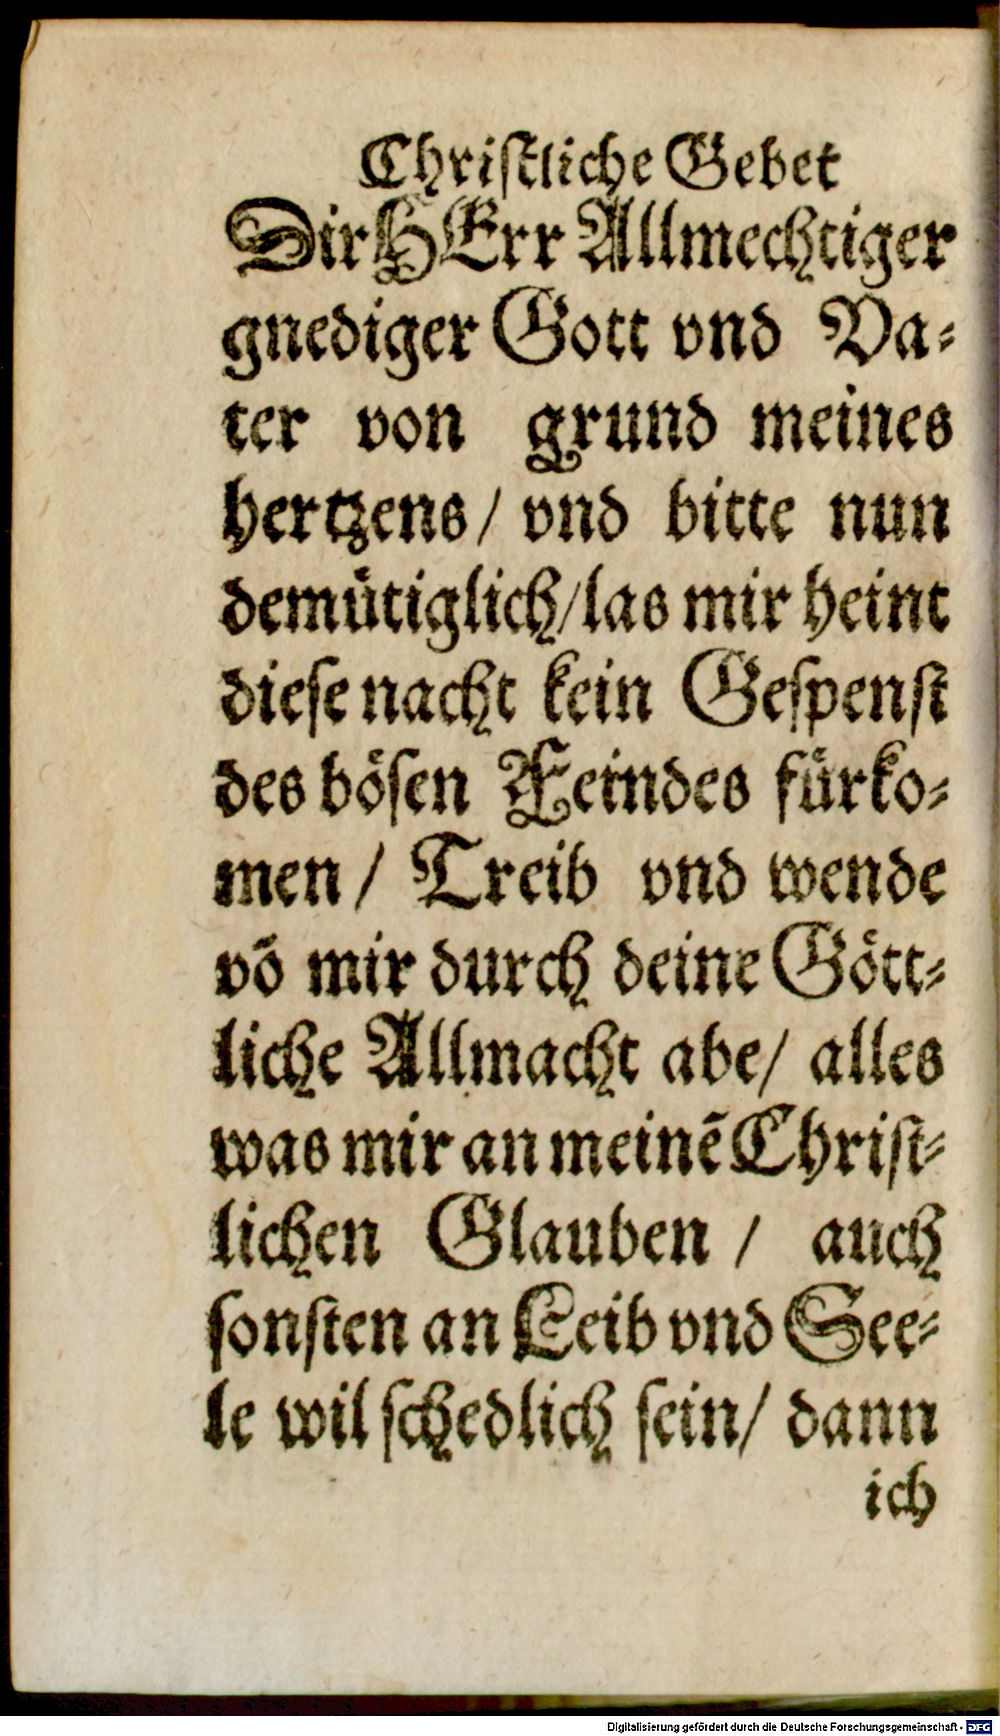 Chriſtliche Gebet
Dir HErr Allmechtiger
gnediger Gott vnd Va-
ter von grund meines
hertzens/ vnd bitte nun
demuͤtiglich/ las mir heint
dieſe nacht kein Geſpenſt
des boͤſen Feindes fuͤrko-
men/ Treib vnd wende
võ mir durch deine Goͤtt-
liche Allmacht abe/ alles
was mir an meinẽ Chriſt-
lichen Glauben/ auch
ſonſten an Leib vnd See-
le wil ſchedlich ſein/ dann
ich
Digitalisierung gefördert durch die Deutsche Forschungsgemeinschaft - DFG